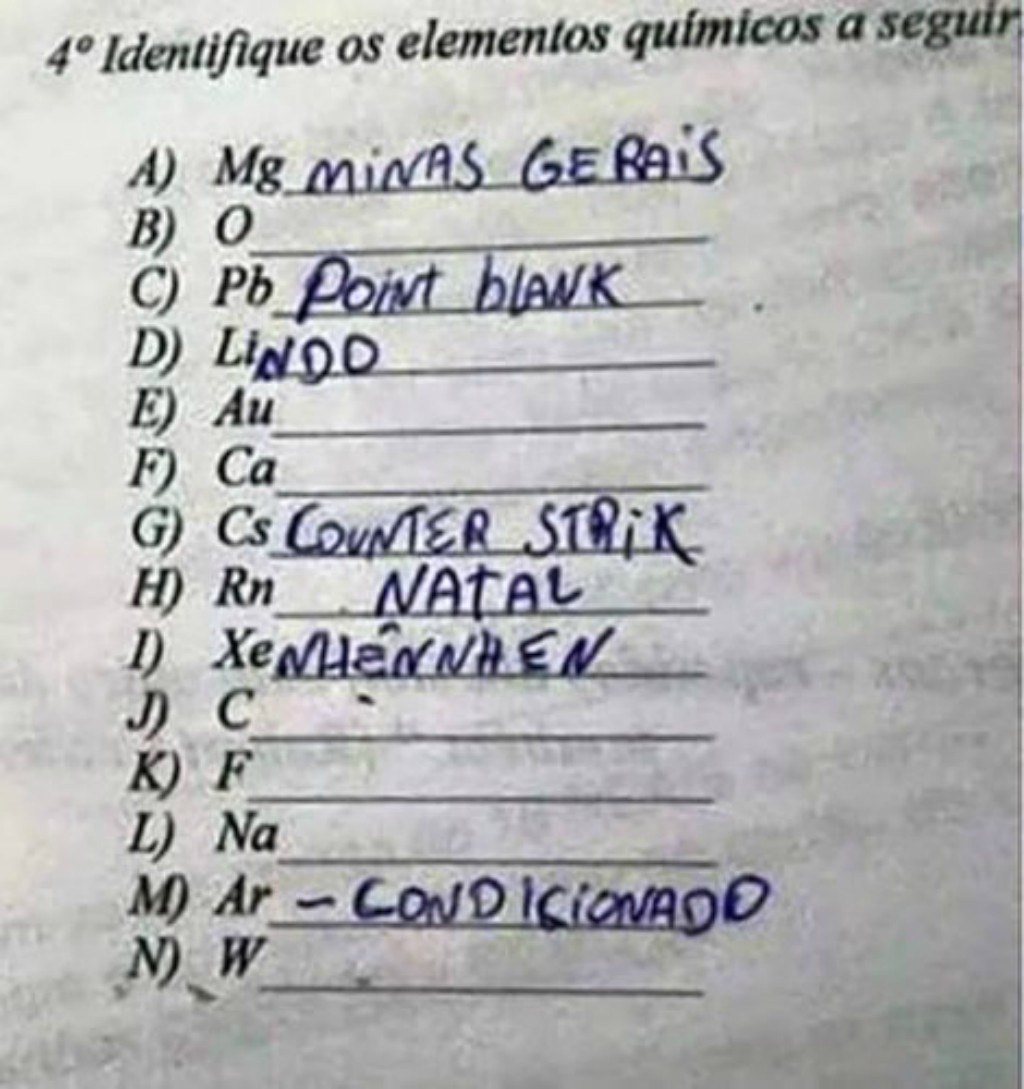 4º Identifique os elementos químicos a seguir
A) Mg MiNAS GERAiS
B) O
C) Pb POiNT bLANK
D) LiNDO
E) Au
F) Ca
G) Cs COUNTER STRiK
H) Rn NATAL
I) XeNHENNHEN
J) C
K) F
L) Na
M) Ar - CONDICiONADO
N) W